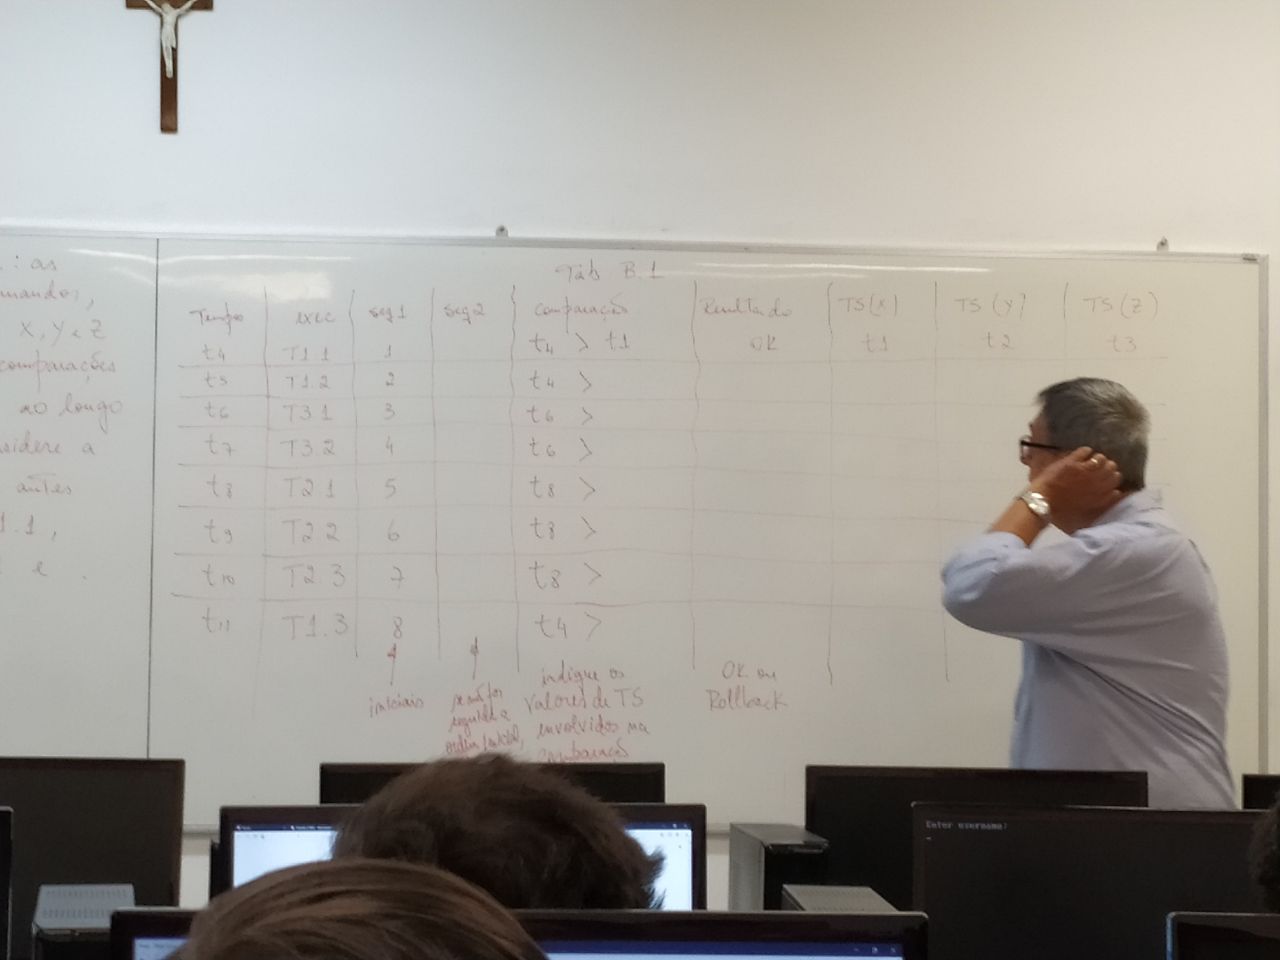 : as
mandos,
X, Y e Z
comparações
ao longo
sidere a
antes
1.1,
e .
Tab B.1
Tempo exec seq1 seq2 comparação Resultado TS(X) TS(Y) TS(Z)
t4 T1.1 1 t4 > t1 OK t1 t2 t3
t5 T1.2 2 t4 >
t6 T3.1 3 t6 >
t7 T3.2 4 t6 >
t8 T2.1 5 t8 >
t9 T2.2 6 t8 >
t10 T2.3 7 t8 >
t11 T1.3 8 t4 >
iniciais
se não for
seguida a
ordem inicial,
indique os
valores de TS
envolvidos na
comparação
OK ou
Rollback
Enter username: